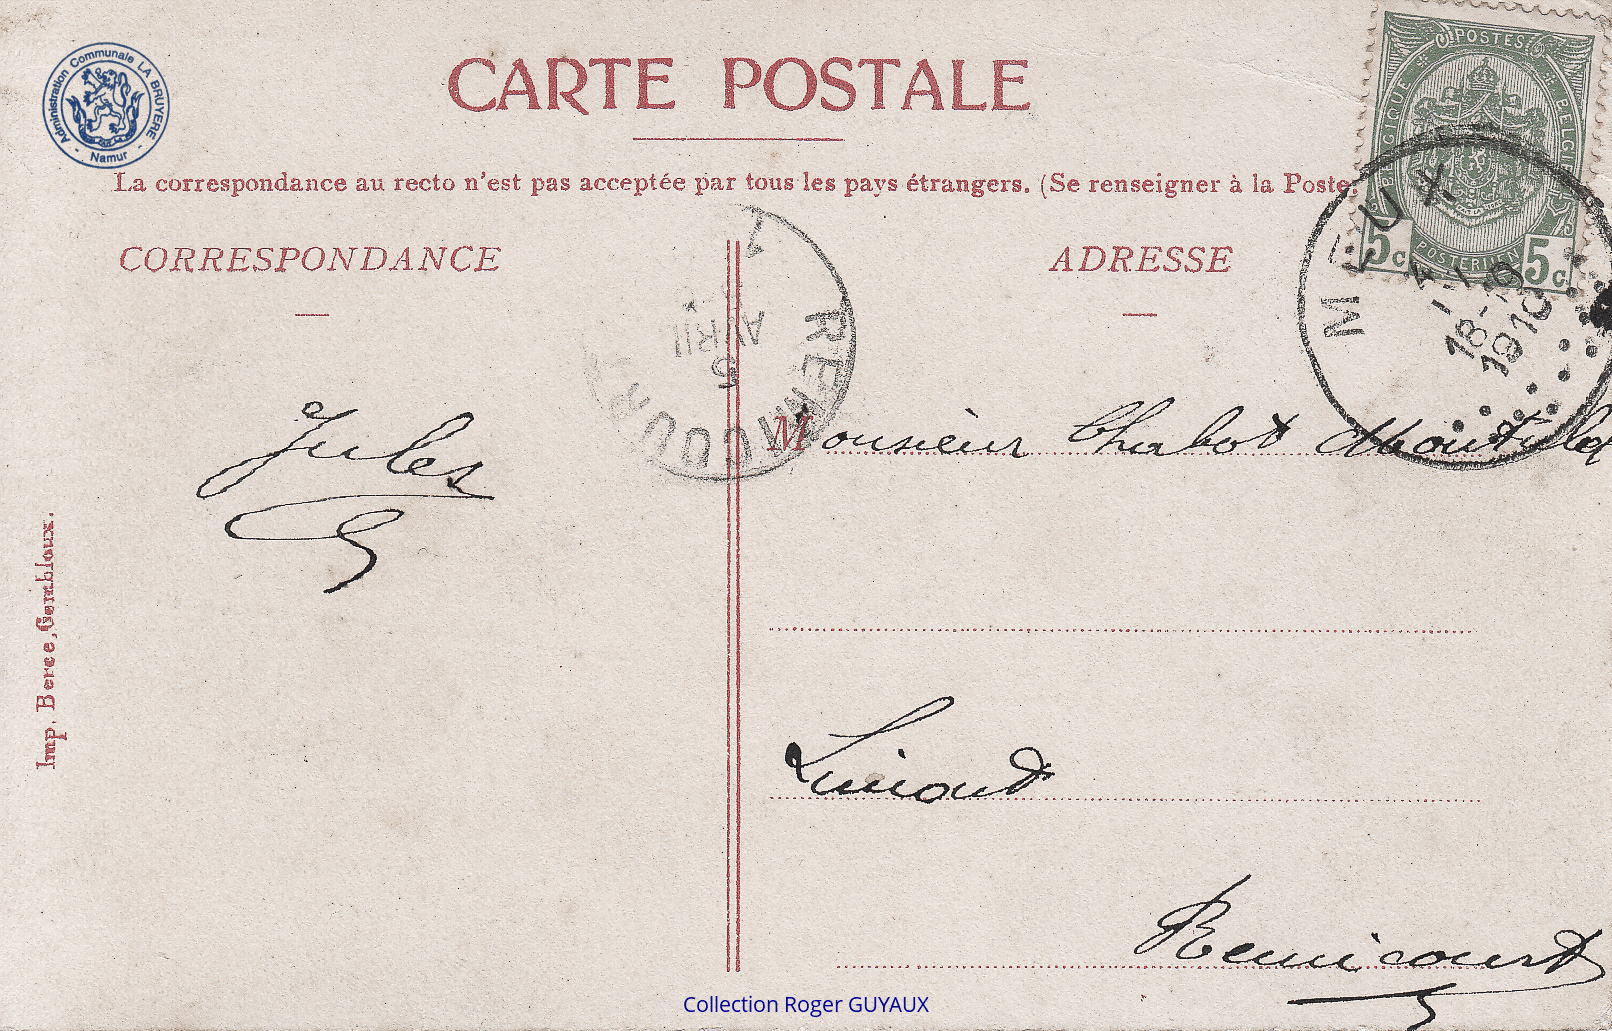 Administration Communale LA BRUYERE
- Namur -
CARTE POSTALE
La correspondance au recto n'est pas acceptée par tous les pays étrangers. (Se renseigner à la Poste.
POSTES
BELGIQUE BELGIË
POSTERIJEN
5c 5c
MEUX
18-19
1910
REMICOUR
5
AVRIL
CORRESPONDANCE
ADRESSE
Jules
Monsieur Chabot
Remicourt
Imp. Berce, Gembloux.
Collection Roger GUYAUX